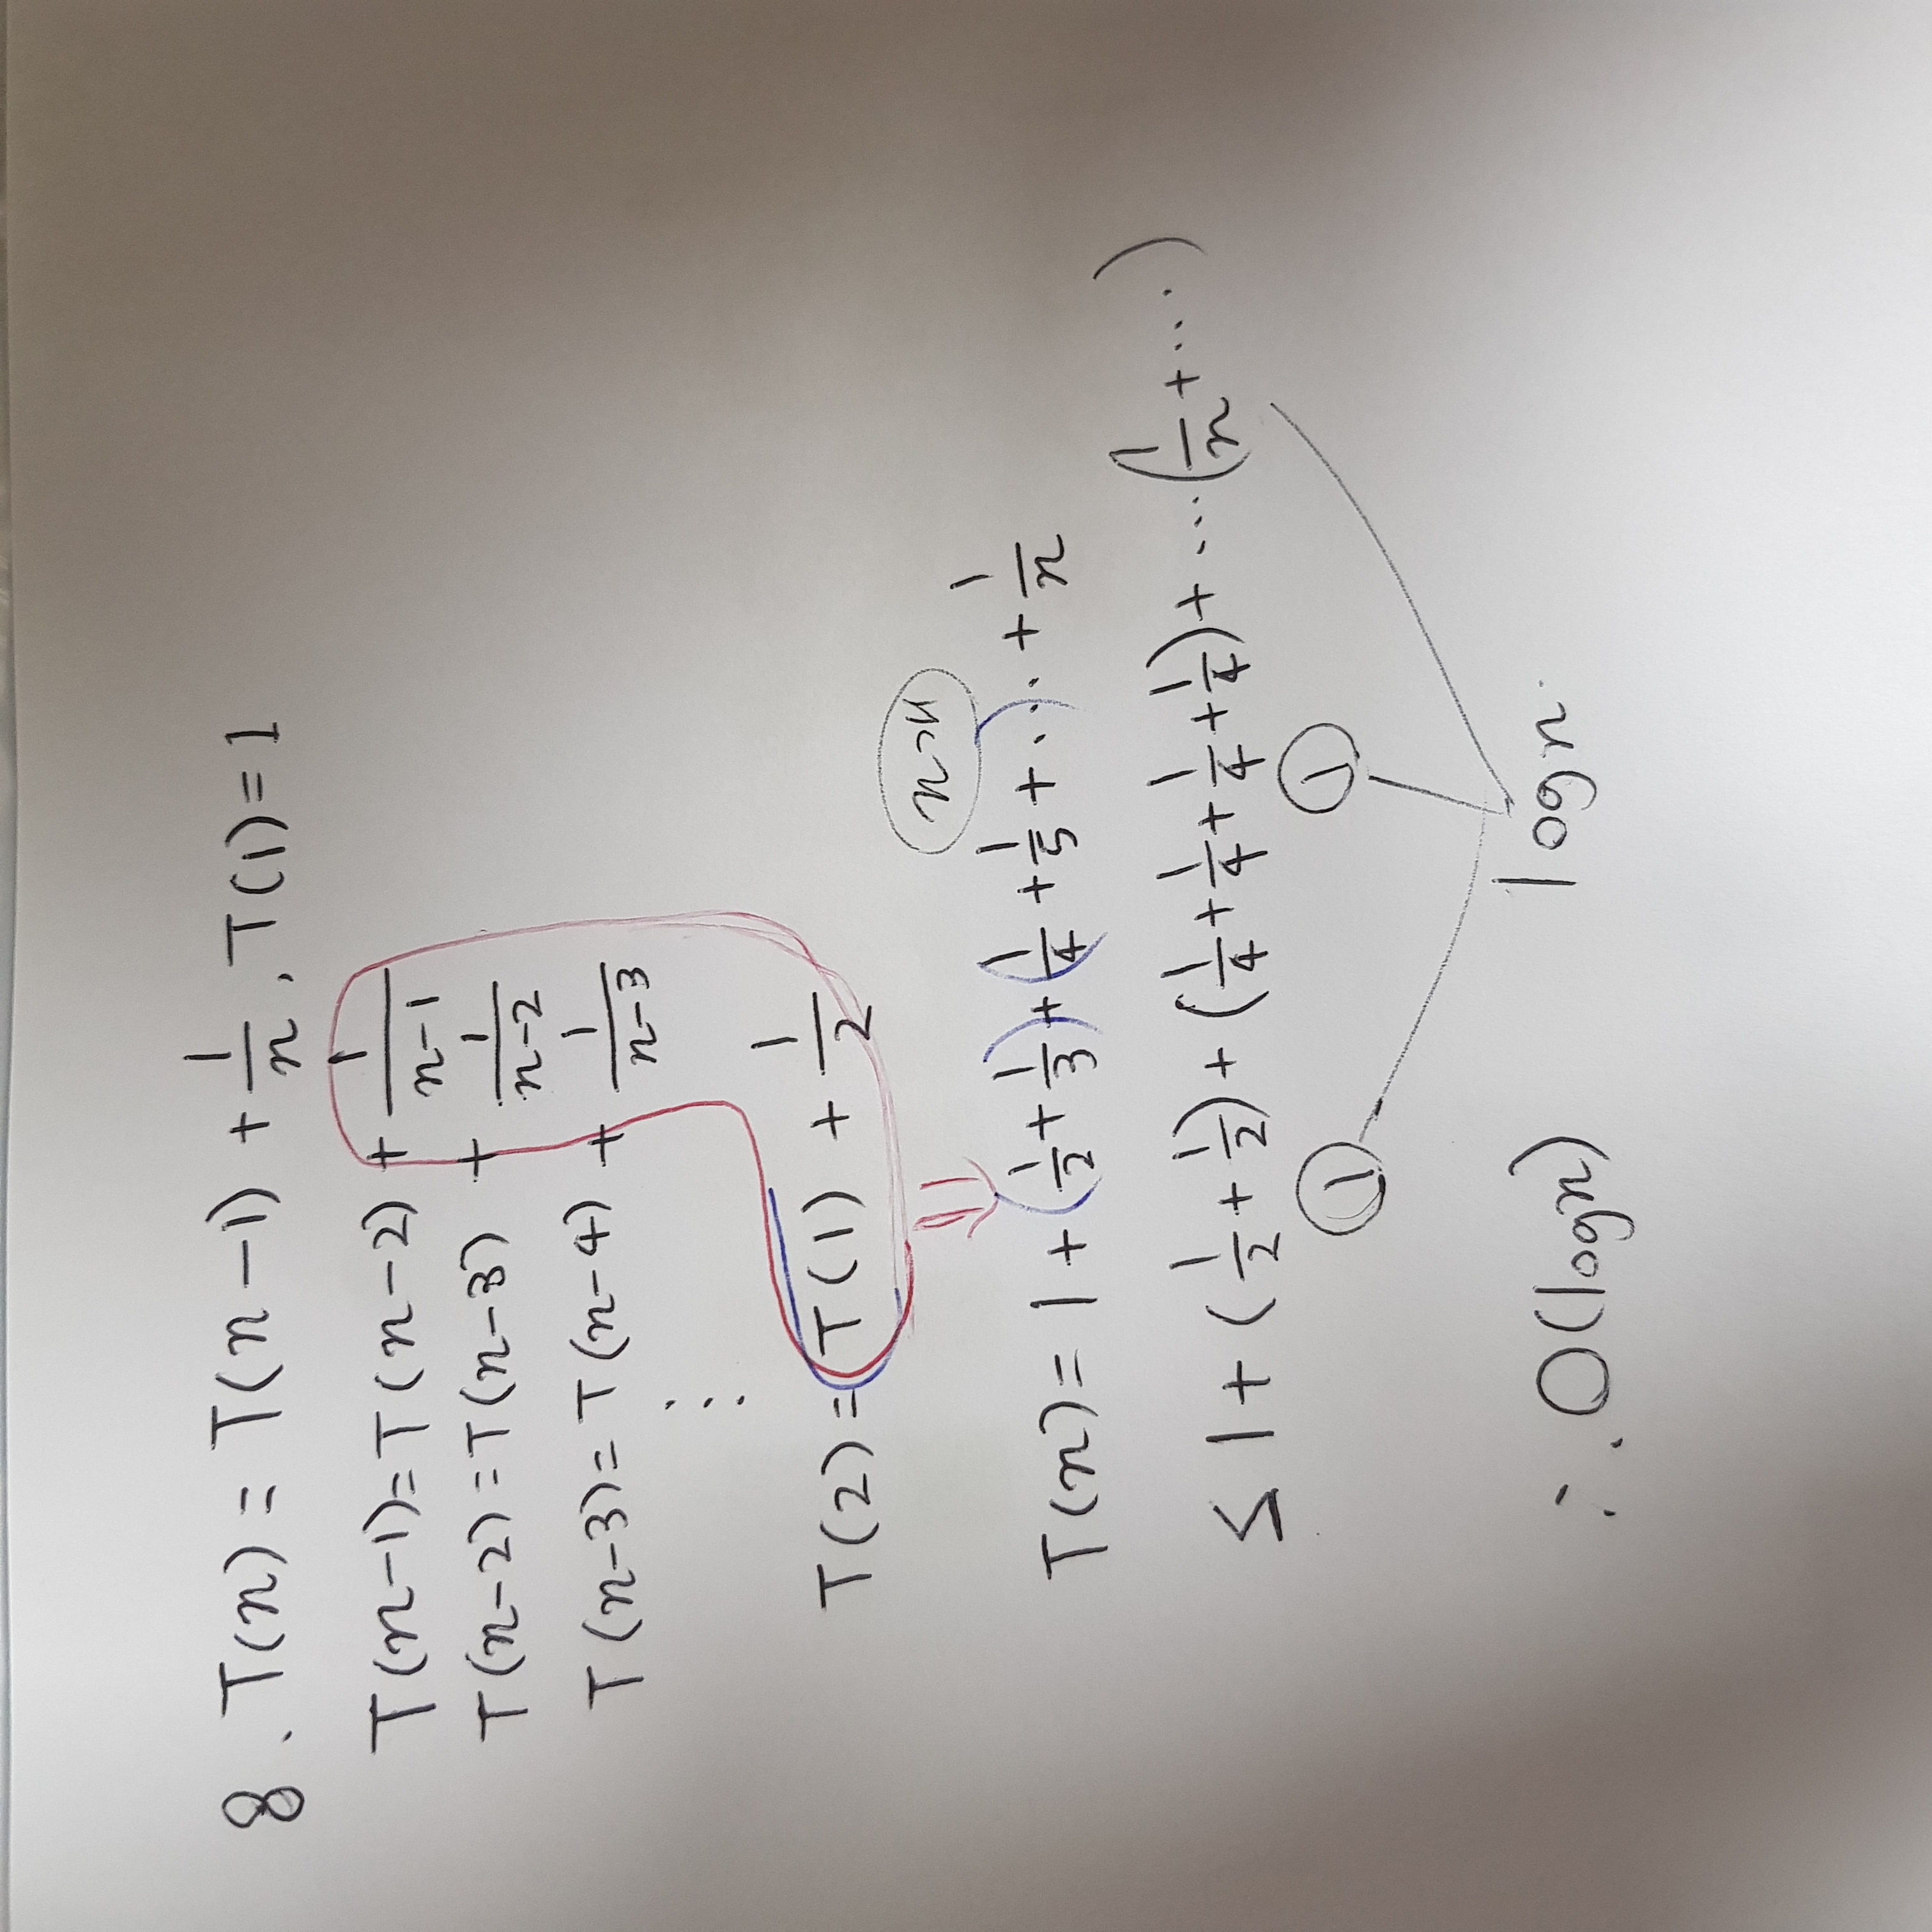 8. T(n) = T(n-1) + 1/n, T(1) = 1
T(n-1) = T(n-2) + 1/(n-1)
T(n-2) = T(n-3) + 1/(n-2)
T(n-3) = T(n-4) + 1/(n-3)
⋮
T(2) = T(1) + 1/2
T(n) = 1 + (1/2 + 1/3) + (1/4 + 1/5 + ...) + 1/n
≤ 1 + (1/2 + 1/2) + (1/4 + 1/4 + 1/4 + 1/4) + ... (1/n + ...)
① ①
log n.
∴ O(log n)